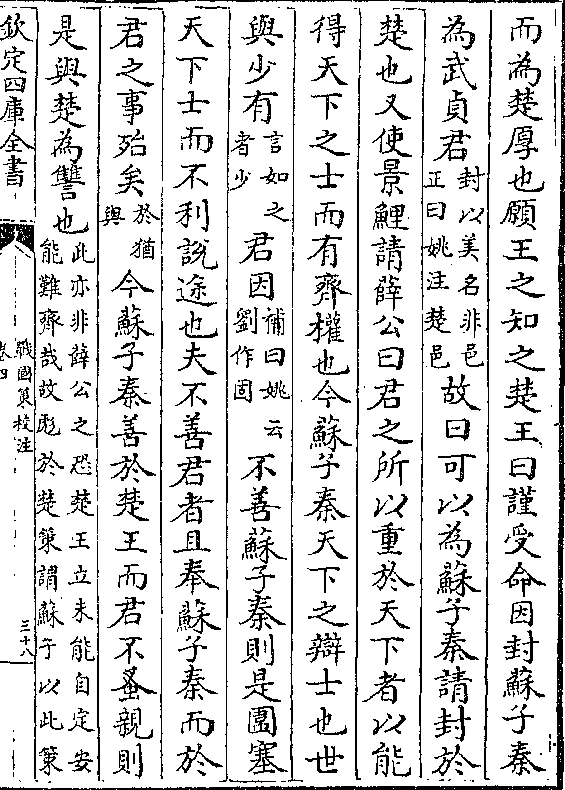 而為楚厚也願王之知之楚王曰謹受命因封蘇子秦
為武貞君封以美名非邑正曰姚注楚邑故曰可以為蘇子秦請封於
楚也又使景鯉請薛公曰君之所以重於天下者以能
得天下之士而有齊權也今蘇子秦天下之辯士也世
與少有言如之者少君因補曰姚云劉作固不善蘇子秦則是圍塞
天下士而不利說途也夫不善君者且奉蘇子秦而於
君之事殆矣於猶與今蘇子秦善於楚王而君不蚤親則
是與楚為讐也此亦非薛公之恐楚王立未能自定安能難齊哉故彪於楚策謂蘇子以此策
欽定四庫全書
戰國策校注
卷四
三十八